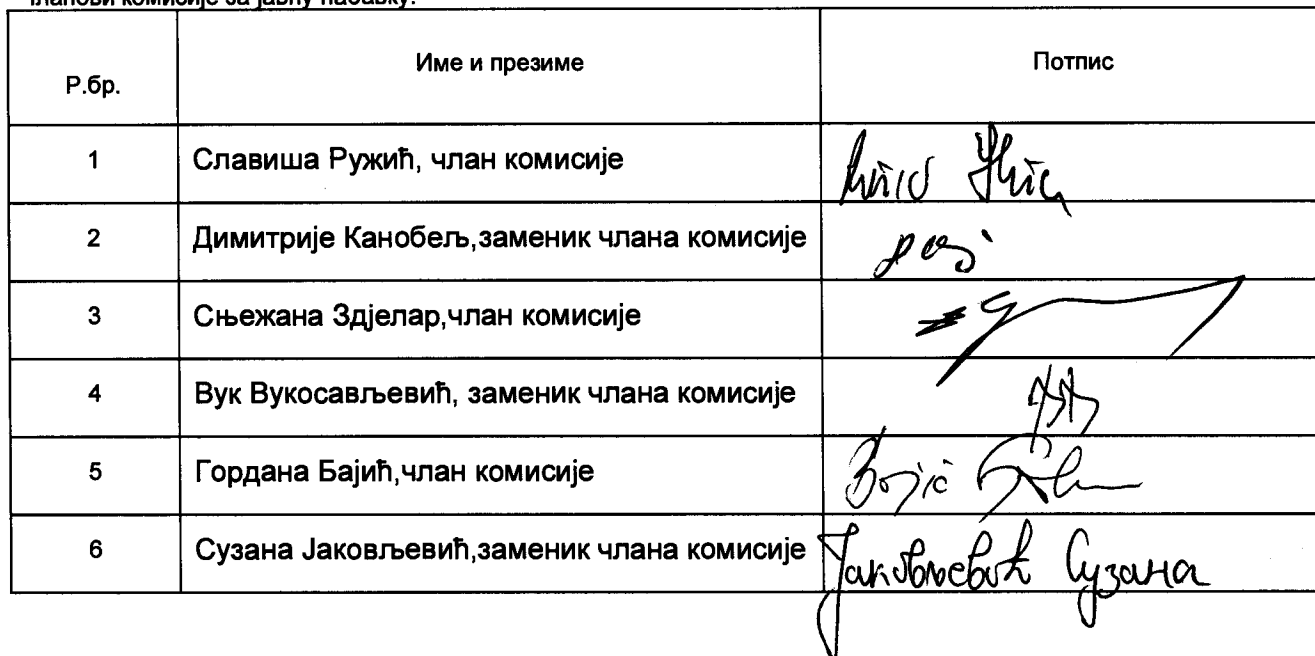 Чланови комисије за јавну набавку:
Р.бр. Име и презиме Потпис
1 Славиша Ружић, члан комисије
2 Димитрије Канобељ,заменик члана комисије
3 Сњежана Здјелар,члан комисије
4 Вук Вукосављевић, заменик члана комисије
5 Гордана Бајић,члан комисије
6 Сузана Јаковљевић,заменик члана комисије Јаковљевић Сузана